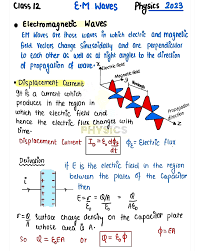 Class 12 E·M Waves Physics 2023
• Electromagnetic Waves
EM Waves are those waves in which electric and magnetic
field vectors change sinusoidally and are perpendicular
to each other as well as at right angles to the direction
of propagation of wave.
Electric field
Magnetic field
• Displacement Current
It is a current which
produces in the region in
which the electric field and
hence the electric flux changes with
time.
Propagation direction
PHYSICS
Displacement Current I_D = ε₀ dϕ_E/dt ϕ_E = Electric flux
Derivation
If E is the electric field in the region
between the plates of the Capacitor
then
E = σ/ε₀ = Q/A/ε₀ = Q/Aε₀
σ = Q/A surface charge density on the capacitor plate
whose area is A.
So Q = ε₀EA or Q = ε₀ϕ
ϕ = EA